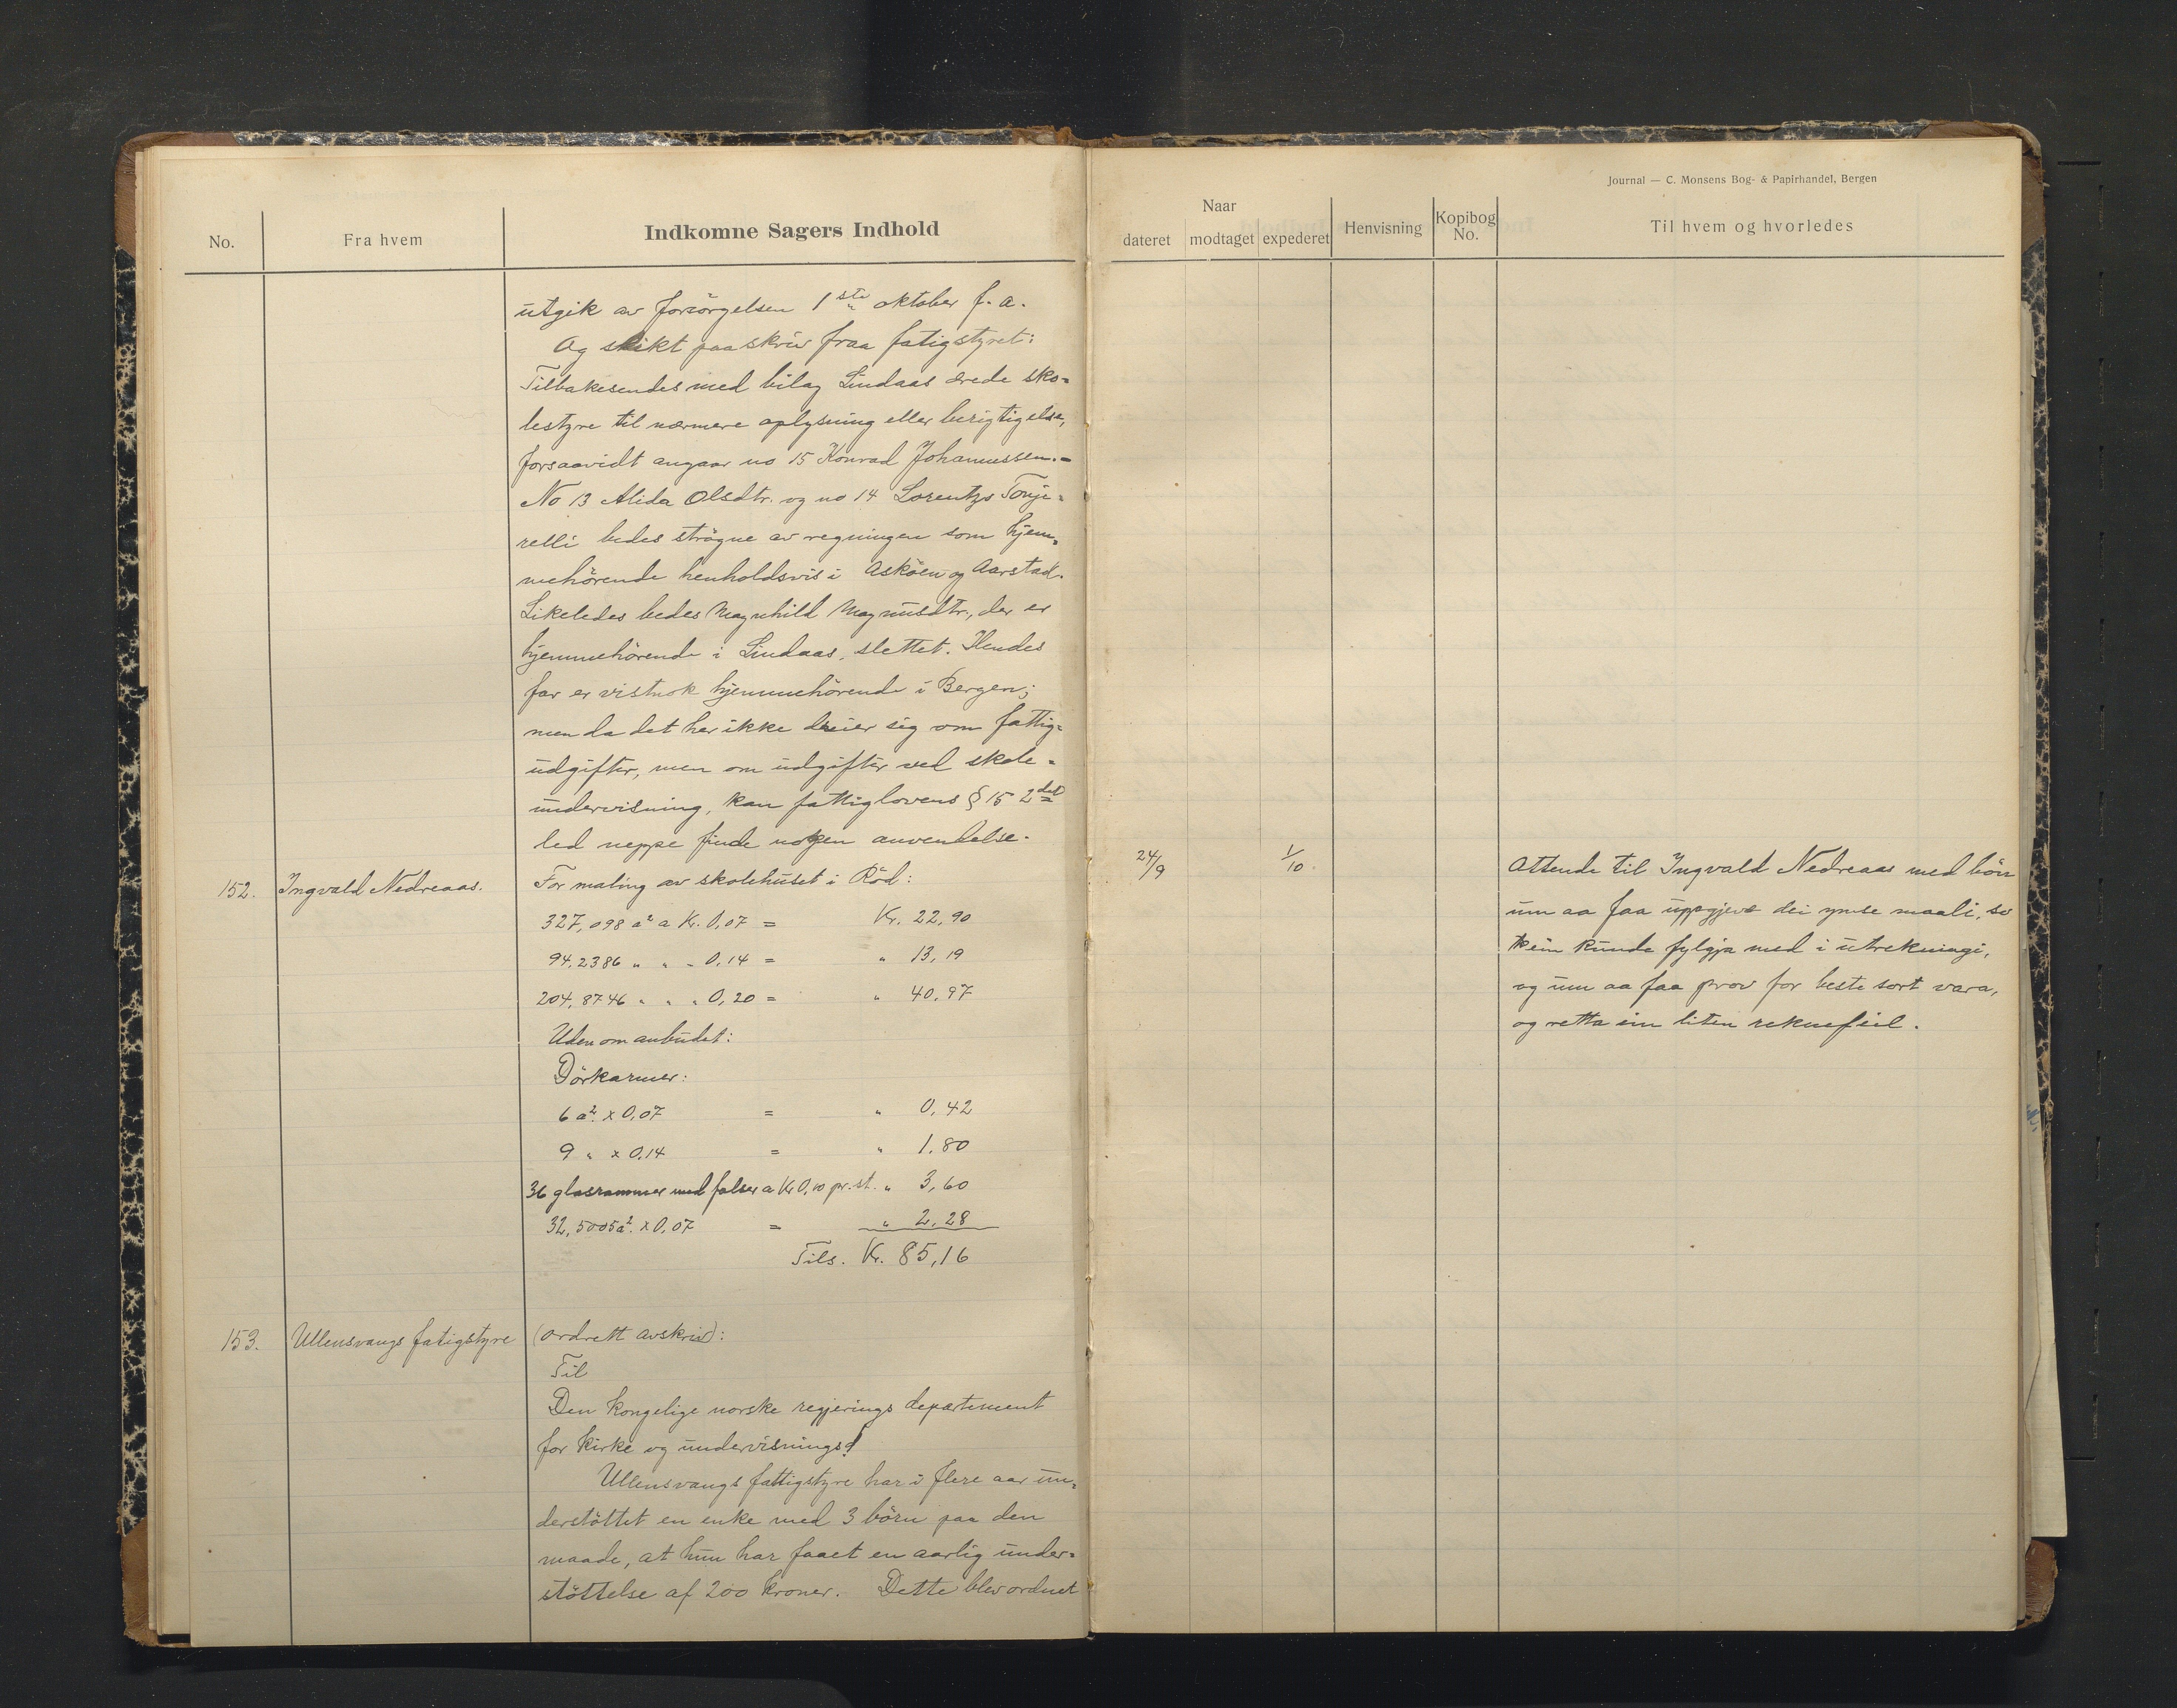 Journal — C. Monsens Bog- & Papirhandel, Bergen
No.
Fra hvem
Indkomne Sagers Indhold
Naar
dateret
modtaget
expederet
Henvisning
Kopibog No.
Til hvem og hvorledes
utgik av forsörgelsen 1ste oktober f. a.
Og slikt paaskriv fraa fatigstyret:
Tilbakesendes med bilag Lindaas ærede sko-
lestyre til nærmere oplysning eller berigtigelse,
forsaavidt angaar no 15 Konrad Johannessen.-
No 13 Alida Olsdtr. og no 14 Lorentze Tonje-
relli bedes strögne av regningen som hjem-
mehörende henholdsvis i Asköen og Aarstad.
Likeledes bedes Magnhild Magnusdtr., der er
hjemmehörende i Lindaas, slettet. Hendes
far er vistnok hjemmehörende i Bergen;
men da det her ikke dreier sig om fattig-
udgifter, men om udgifter ved skole-
undervisning, kan fattiglovens § 15 2det
led neppe finde nogen anvendelse.
152. Ingvald Nedreaas.
For maling av skolehuset i Röd:
327,098 a² a Kr. 0,07 = Kr. 22,90
94,2386 " " - 0,14 = " 13,19
204,8746 " " " 0,20 = " 40,97
Uden om anbudet:
Dörkarmer:
6 a². x 0,07 = " 0,42
9 " x 0,14 = " 1,80
36 glasrammer med falser a Kr 0,10 pr. st. " 3,60
32,5005 a². x 0,07 = " 2,28
Tils. Kr. 85,16
24/9
1/10.
Attende til Ingvald Nedreaas med bön
um aa faa uppgjeve dei ymse maali, so
ein kunde fylgja med i utrekningi,
og um aa faa prov for beste sort vara,
og retta ein liten reknefeil.
153. Ullensvangs fatigstyre
(ordrett avskriv):
Til
Den kongelige norske regjerings departement
for kirke og undervisningsd
Ullensvangs fattigstyre har i flere aar un-
derstöttet en enke med 3 börn paa den
maade, at hun har faaet en aarlig under-
stöttelse af 200 kroner. Dette blev ordnet